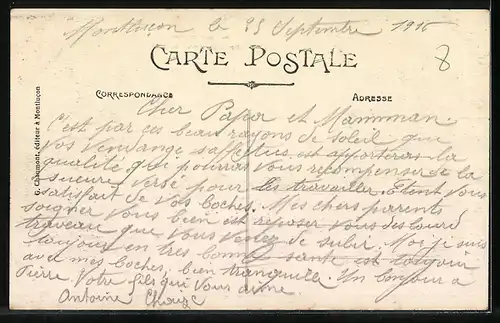 Montluçon le 25 Septembre 1916
8
CARTE POSTALE
CORRESPONDANCE
ADRESSE
G. Chaumont, éditeur à Montluçon
Cher Papa et Mamman.
C'est par ces beau rayons de soleil que
vos vendange saffectus est apporteras la
qualité qui pourras vous recompenser de la
sueure versé pour les travailler. Etent vous
satisfait de vos boches. Mes chers parents
soigner vous bien et reposer vous des lourd
traveau que vous venez de subir. Moi je suis
toujour en tres bonne sante est toujour
avec mes boches, bien tranquille. Un bonjour a
Pierre. Votre fils qui vous aime
Antoine